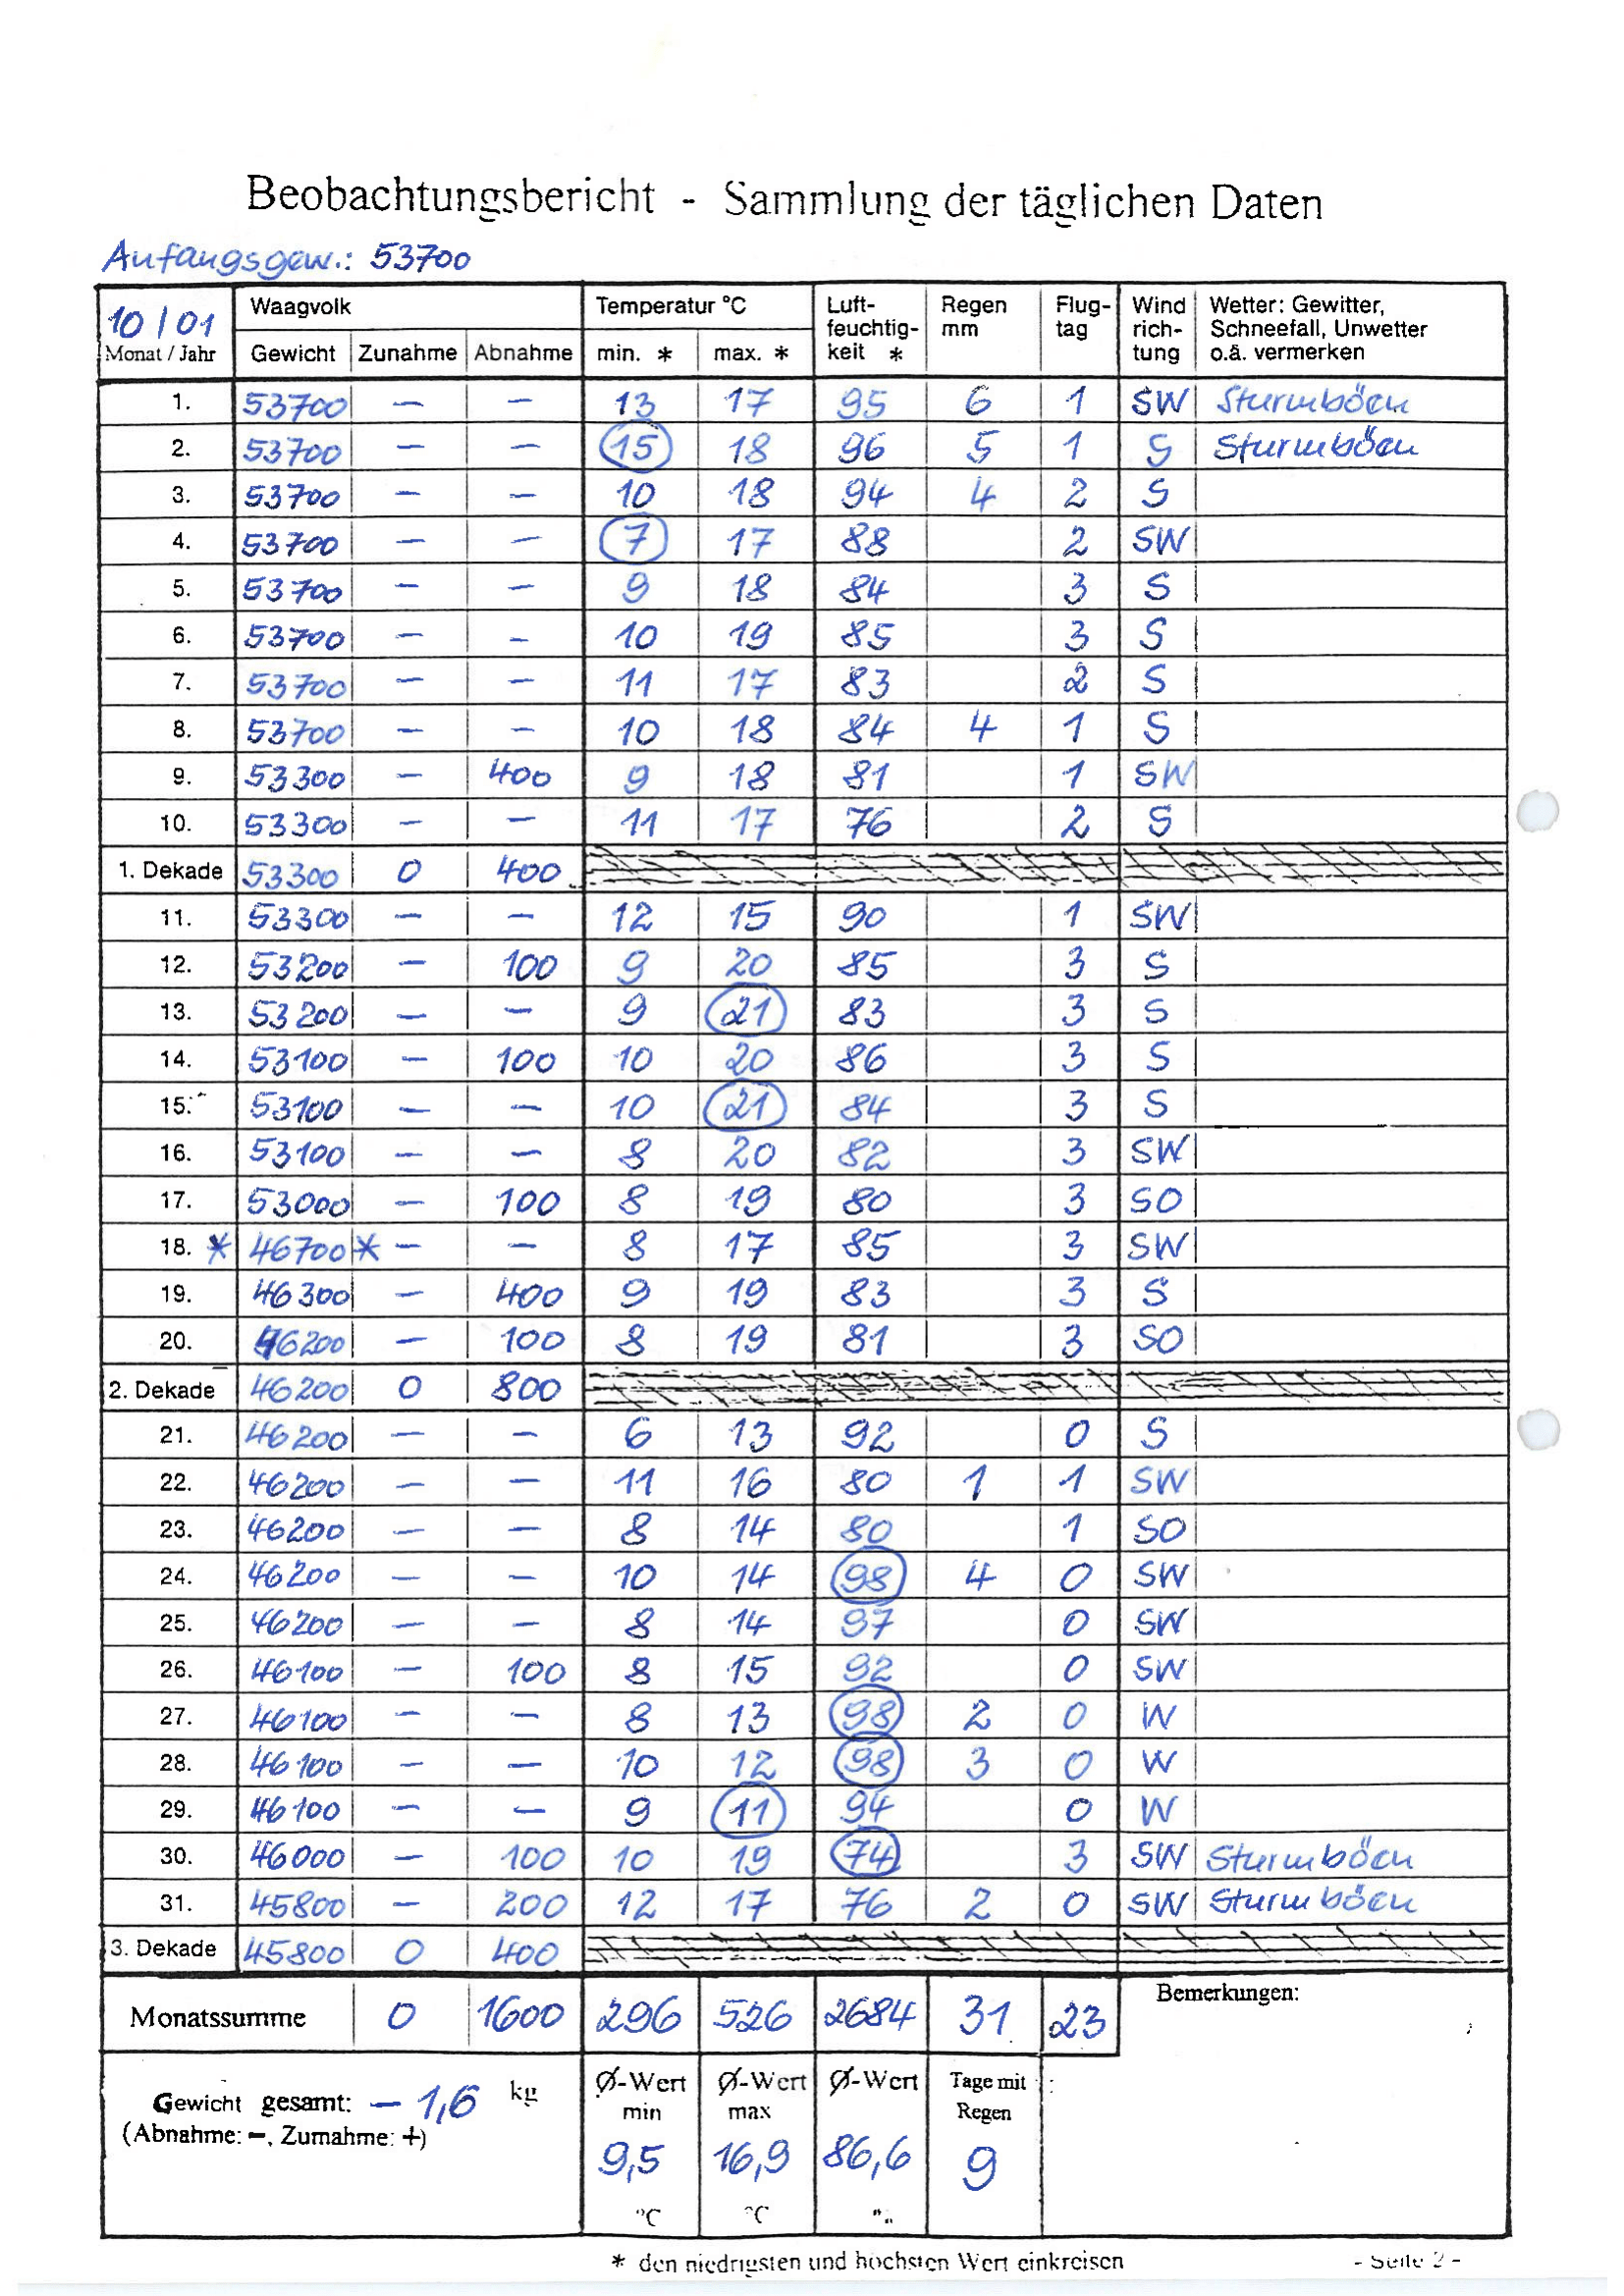 Beobachtungsbericht - Sammlung der täglichen Daten
Anfangsgew.: 53700
10/01 Waagvolk Temperatur °C Luft- Regen Flug- Wind Wetter: Gewitter,
feuchtig- mm tag rich- Schneefall, Unwetter
Monat / Jahr Gewicht Zunahme Abnahme min. * max. * keit * tung o.ä. vermerken
1. 53700 — — 13 17 95 6 1 SW Sturmböen
2. 53700 — — 15 18 96 5 1 S Sturmböen
3. 53700 — — 10 18 94 4 2 S
4. 53700 — — 7 17 88 2 SW
5. 53700 — — 9 18 84 3 S
6. 53700 — — 10 19 85 3 S
7. 53700 — — 11 17 83 2 S
8. 53700 — — 10 18 84 4 1 S
9. 53300 — 400 9 18 81 1 SW
10. 53300 — — 11 17 76 2 S
1. Dekade 53300 0 400
11. 53300 — — 12 15 90 1 SW
12. 53200 — 100 9 20 85 3 S
13. 53200 — — 9 21 83 3 S
14. 53100 — 100 10 20 86 3 S
15. 53100 — — 10 21 84 3 S
16. 53100 — — 8 20 82 3 SW
17. 53000 — 100 8 19 80 3 SO
18. * 46700 * — — 8 17 85 3 SW
19. 46300 — 400 9 19 83 3 S
20. 46200 — 100 8 19 81 3 SO
2. Dekade 46200 0 800
21. 46200 — — 6 13 92 0 S
22. 46200 — — 11 16 80 1 1 SW
23. 46200 — — 8 14 80 1 SO
24. 46200 — — 10 14 98 4 0 SW
25. 46200 — — 8 14 97 0 SW
26. 46100 — 100 8 15 92 0 SW
27. 46100 — — 8 13 98 2 0 W
28. 46100 — — 10 12 98 3 0 W
29. 46100 — — 9 11 94 0 W
30. 46000 — 100 10 19 74 3 SW Sturmböen
31. 45800 — 200 12 17 76 2 0 SW Sturmböen
3. Dekade 45800 0 400
Monatssumme 0 1600 296 526 2684 31 23 Bemerkungen:
Gewicht gesamt: — 1,6 kg Ø-Wert Ø-Wert Ø-Wert Tage mit
(Abnahme: −, Zumahme: +) min max Regen
9,5 16,9 86,6 9
°C °C
* den niedrigsten und höchsten Wert einkreisen - Seite 2 -